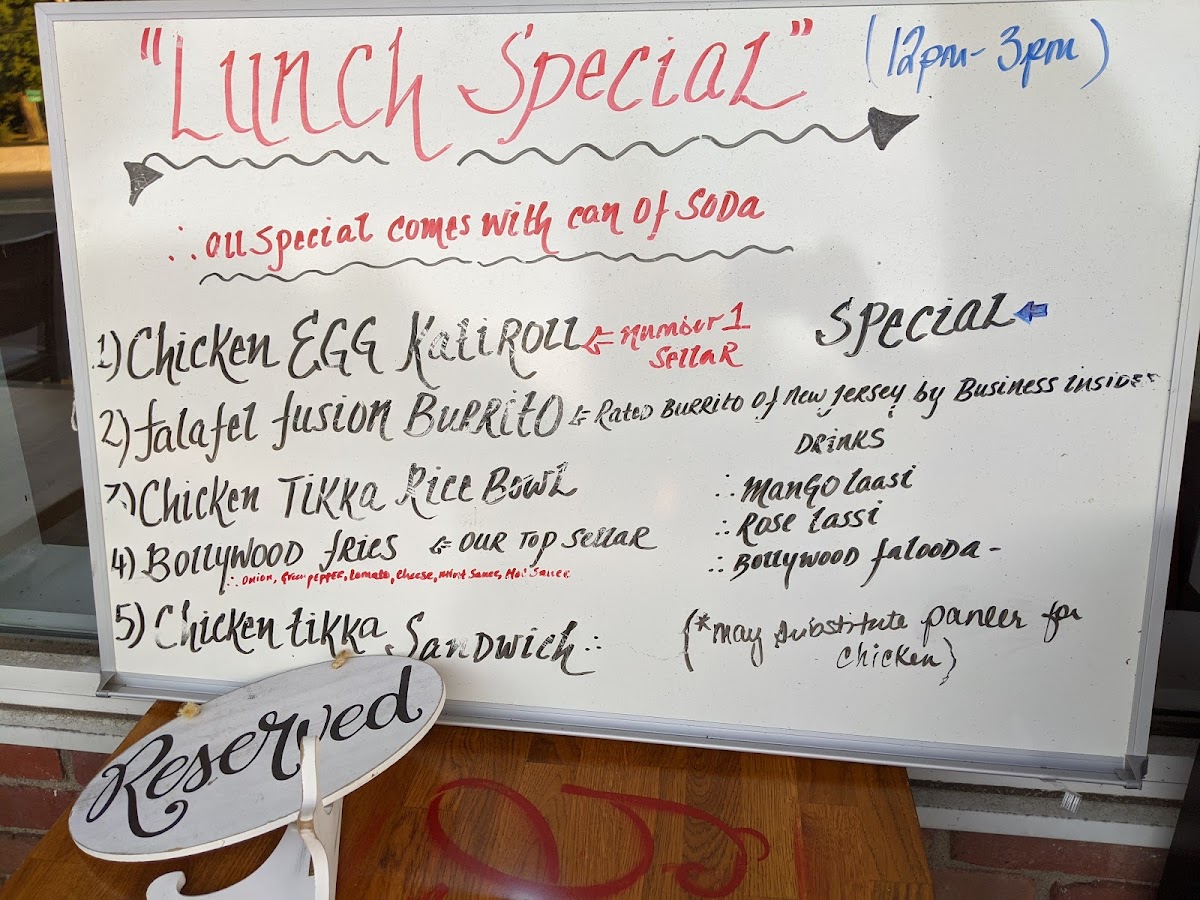 "Lunch Special" (12pm - 3pm)
∴ all special comes with can of Soda
1) Chicken EGG Kati Roll ⇐ Number 1 Sellar
Special ⇐
2) falafel fusion Burrito ⇐ Rated Burrito of New Jersey by Business insider
Drinks
3) Chicken Tikka Rice Bowl
∴ Mango laasi
∴ Rose lassi
4) Bollywood fries ⇐ our Top Sellar
∴ Bollywood falooda -
∴ Onion, Green pepper, tomato, cheese, mint Sauce, Hot Sauce
5) Chicken tikka Sandwich ∴
(*may substitute paneer for
chicken)
Reserved